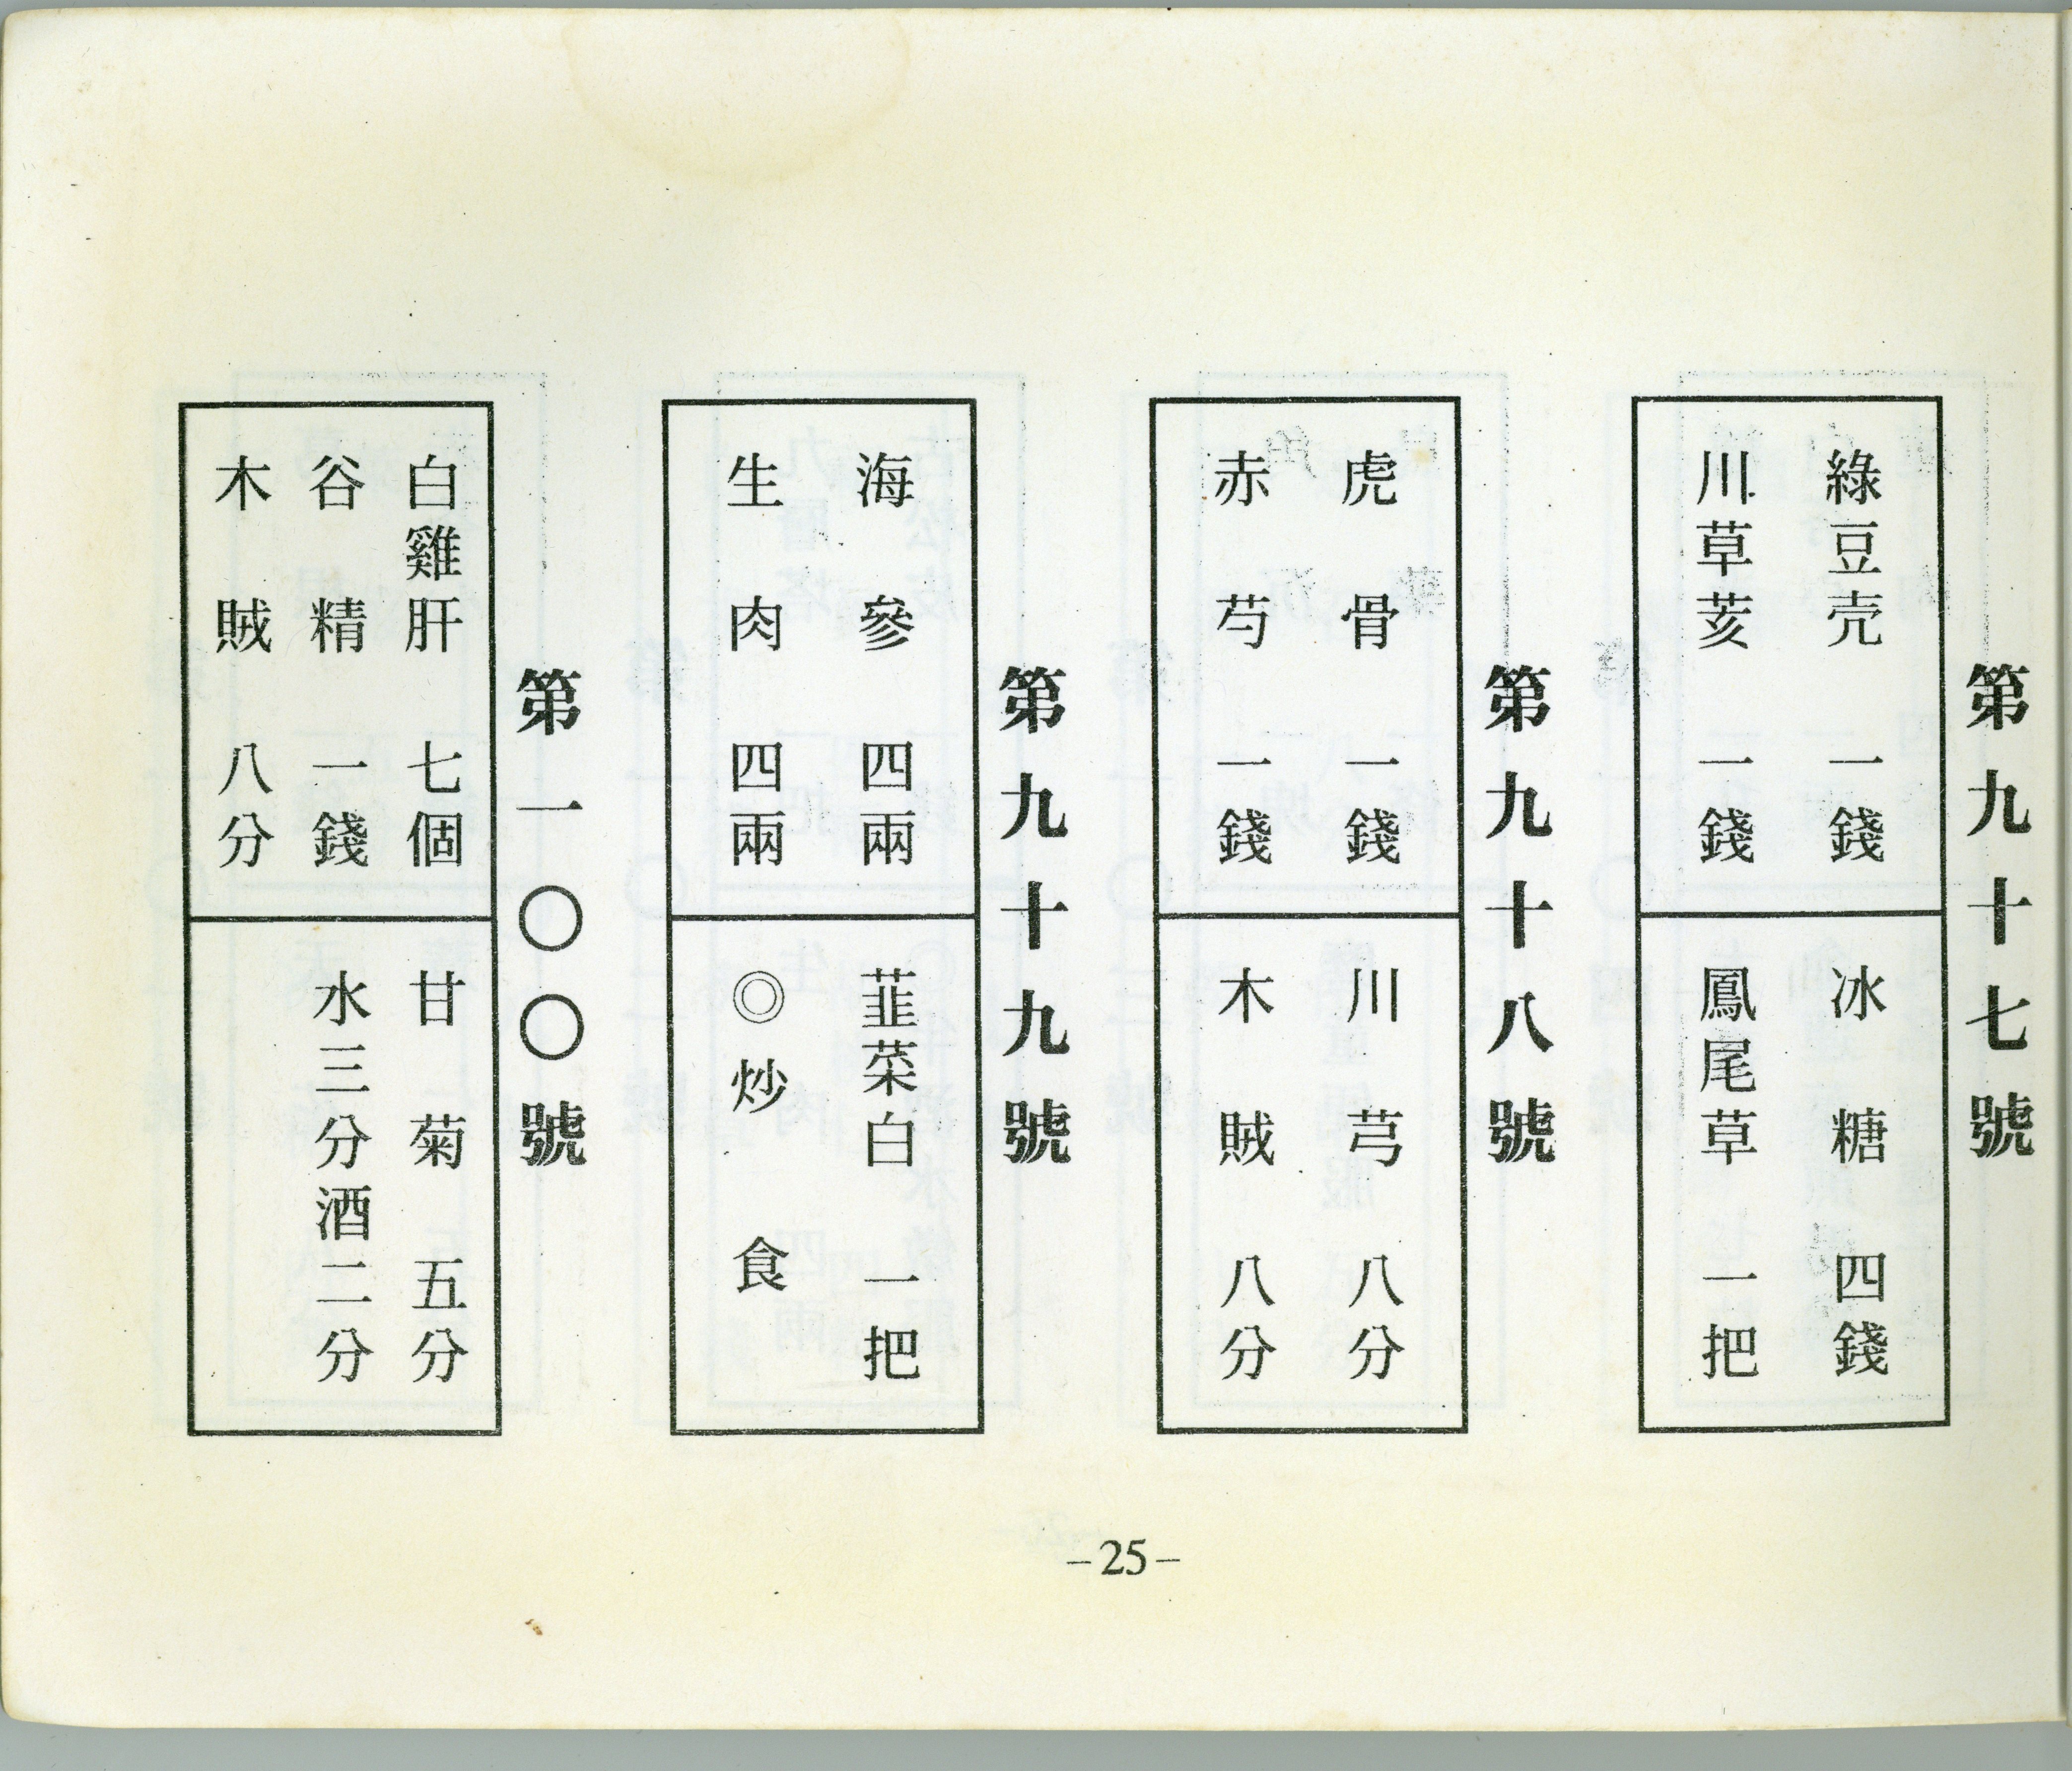 第九十七號
綠豆壳 一錢
川草苃 一錢
冰糖 四錢
鳳尾草 一把
第九十八號
虎骨 一錢
赤芍 一錢
川芎 八分
木賊 八分
第九十九號
海參 四兩
生肉 四兩
韮菜白 一把
◎炒食
第一〇〇號
白雞肝 七個
谷精 一錢
木賊 八分
甘菊 五分
水三分酒二分
-25-